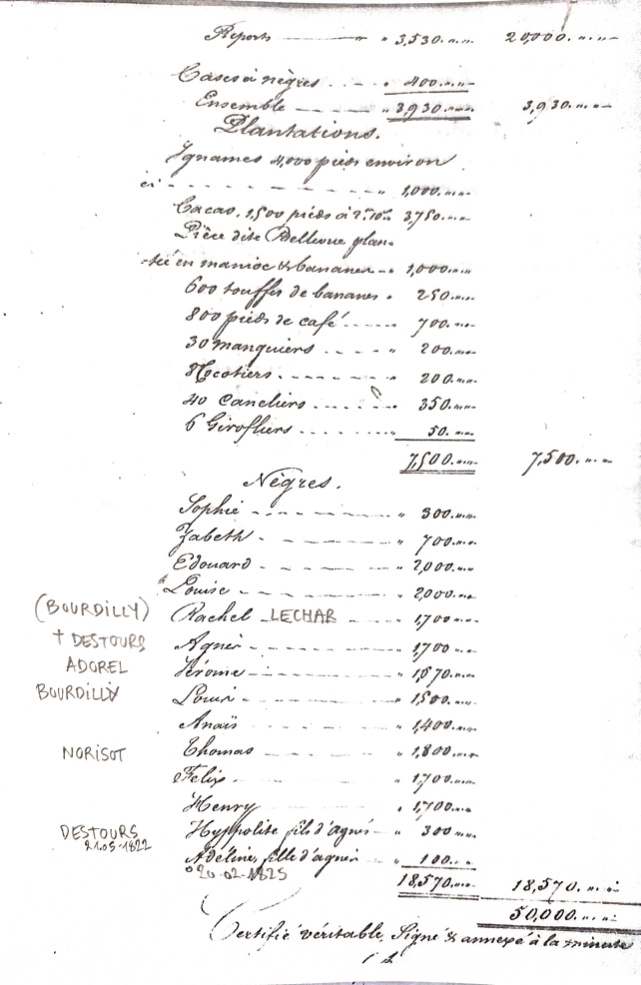 Reports " 3,530. 20,000.
Cases à nègres " 400.
Ensemble " 3,930. 3,930.
Plantations.
Ignames 4,000 pieds environ
ci " 1,000.
Cacao, 1,500 pieds à 3,750.
Pièce dite Bellevue plan-
tée en manioc & bananes " 1,000.
600 touffes de bananes " 250.
800 pieds de café " 700.
30 manguiers " 200.
8 Cocotiers " 200.
40 Caneliers " 350.
6 Girofliers 50.
7,500. 7,500.
Nègres.
Sophie " 300.
Zabeth " 700.
Edouard " 2,000.
Louise " 2,000.
(BOURDILLY) Rachel LECHAR " 1,700
+ DESTOURS Agnès " 1,700
ADOREL Jérome " 1,670.
BOURDILLY Louis " 1,500.
Anaïs " 1,400.
NORISOT Thomas " 1,800.
Felix " 1,700.
Henry " 1,700.
DESTOURS Hyppolite fils d'agnès " 300
21.05.1822 Adeline, fille d'agnès " 100.
° 20-02-1825 18,570. 18,570.
50,000.
Certifié véritable, Signé & annexé à la minute